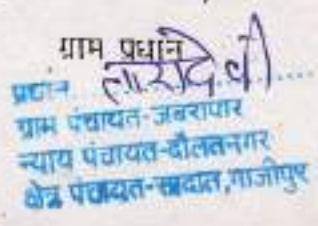 ग्राम प्रधान
तारादेवी
प्रधान.....
ग्राम पंचायत-जबरापार
न्याय पंचायत-दौलतनगर
क्षेत्र पंचायत-सादात,गाजीपुर